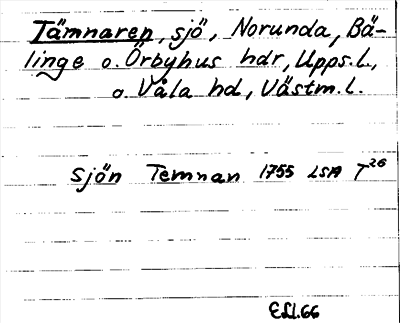 Tämnaren, sjö, Norunda, Bä-
linge o. Örbyhus hdr, Upps.l.,
o. Våla hd, Västm.l.
sjön Temnan 1755 LSA T26
ELl.66